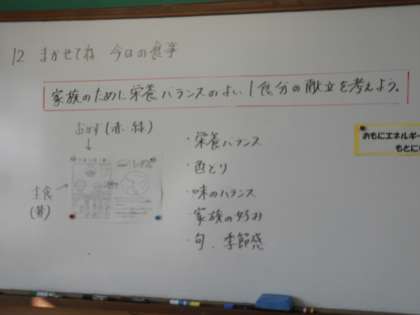 12 まかせてね 今日の食事
家族のために栄養バランスのよい1食分の献立を考えよう。
おかず(赤、緑)
↓
主食→
(黄)
・栄養バランス
・色どり
・味のバランス
・家族の好み
・旬、季節感
おもにエネルギー
もとに